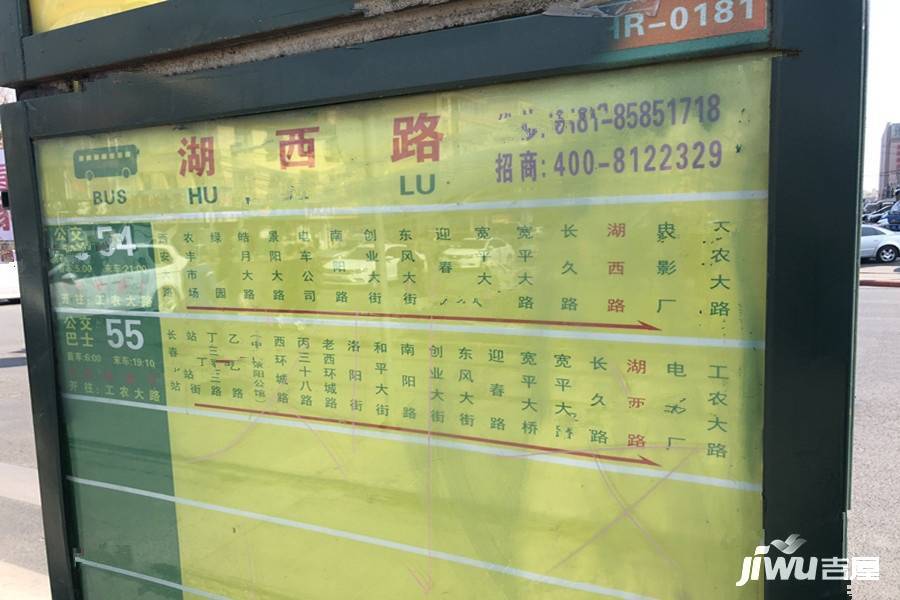 HR-0181
湖西路
85851718
BUS HU LU
招商:400-8122329
公交 54
末车:21:00
开往:工农大路
农丰市场
绿园
皓月大路
景阳大路
电车公司
南阳路
创业大街
东风大街
迎春
宽平大
宽平大路
长久路
湖西路
电影厂
工农大路
公交巴士 55
首车:6:00 末车:19:10
开往:工农大路
长春站
站街
西环城路
丙三十八路
老西环城路
洛阳街
和平大街
南阳路
创业大街
东风大街
迎春路
宽平大桥
宽平大路
长久路
湖西路
电影厂
工农大路
JIWU吉屋